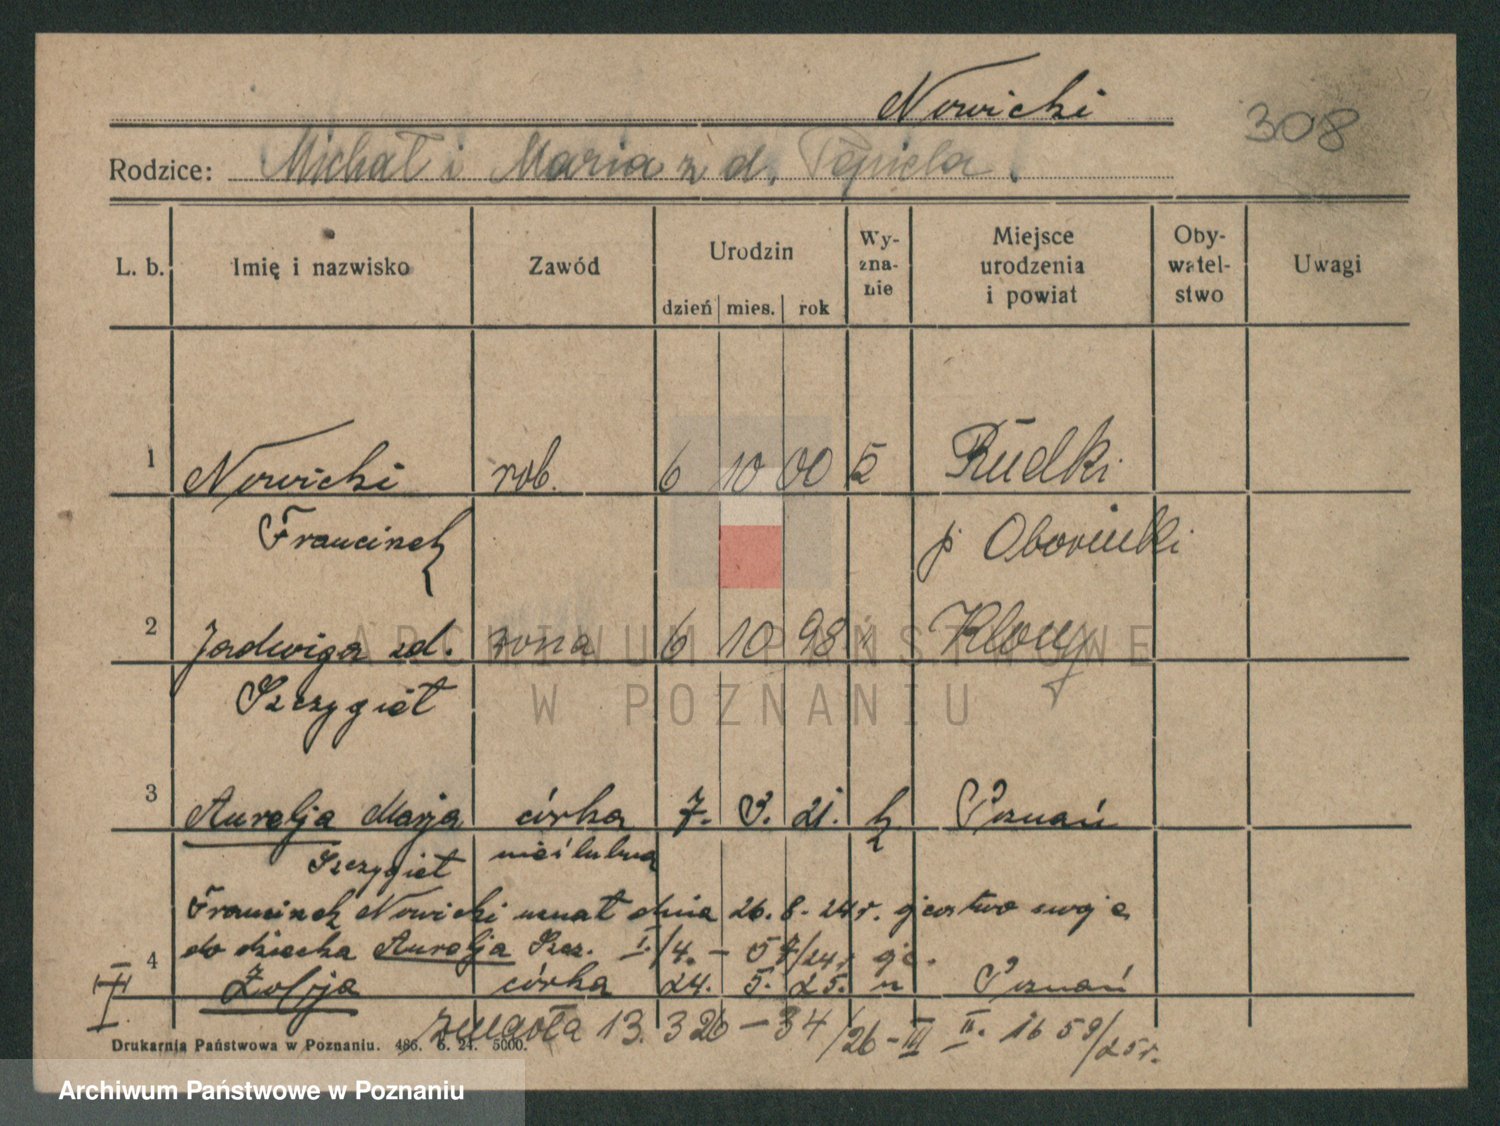 Nowicki
308
Rodzice: Michał i Maria z d.
L. b. Imię i nazwisko Zawód Urodzin dzień mies. rok Wy-zna-nie Miejsce urodzenia i powiat Oby-watel-stwo Uwagi
1 Nowicki rob. 6 10 00 Rudki
Franciszek p Obornicki
2 Jadwiga zd. żona 6 10 98 "
Szczygieł
3 Aurelja Marja córka 7. 3. 21. k Poznań
Szczygieł nieślubna
Franciszek Nowicki uznał dnia 26. 8. 24 r. ojcostwo swoje
do dziecka Aurelja Szcz. I/4. - 57/24 r.
4 Zofja córka 24. 5. 25. " Poznań
zmarła 13. 3 26 - 34/26 - III II. 1659/25 r.
Drukarnia Państwowa w Poznaniu. 486. 6. 24. 5000.
ARCHIWUM PAŃSTWOWE
W POZNANIU
Archiwum Państwowe w Poznaniu